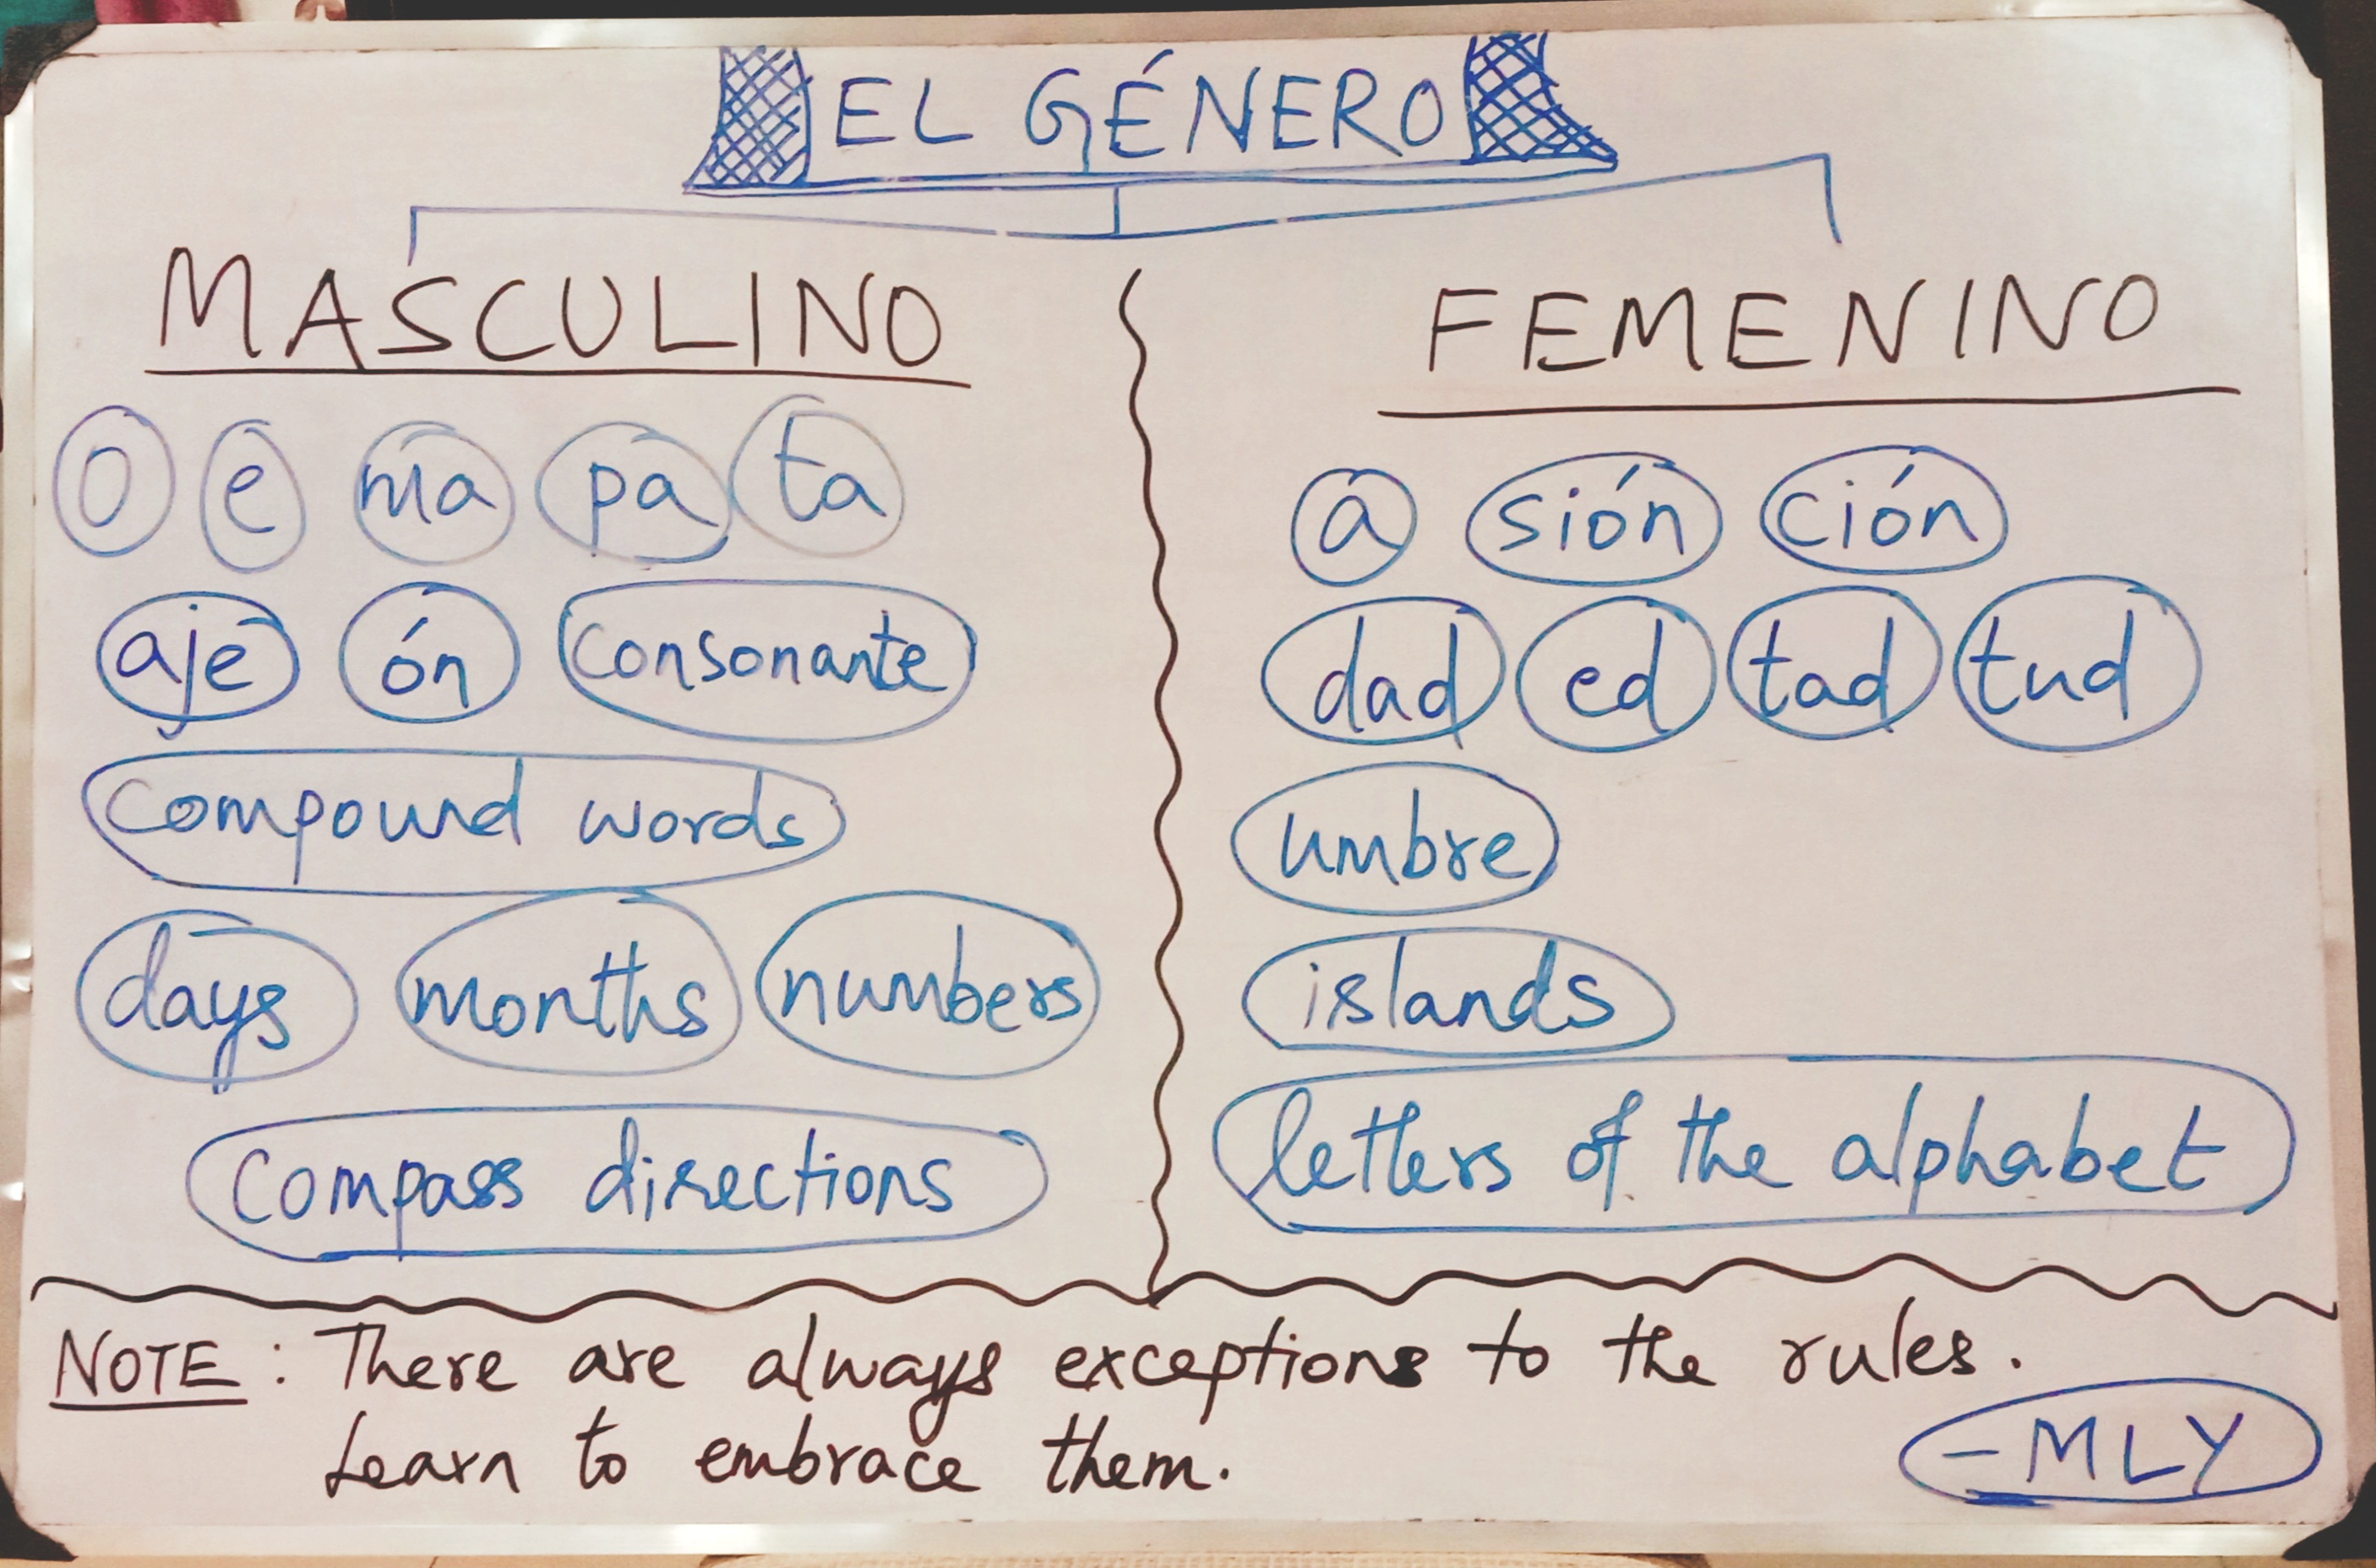 EL GÉNERO
MASCULINO
o e ma pa ta
aje ón consonante
compound words
days months numbers
compass directions
FEMENINO
a sión ción
dad ed tad tud
umbre
islands
letters of the alphabet
NOTE: There are always exceptions to the rules.
Learn to embrace them.
-MLY